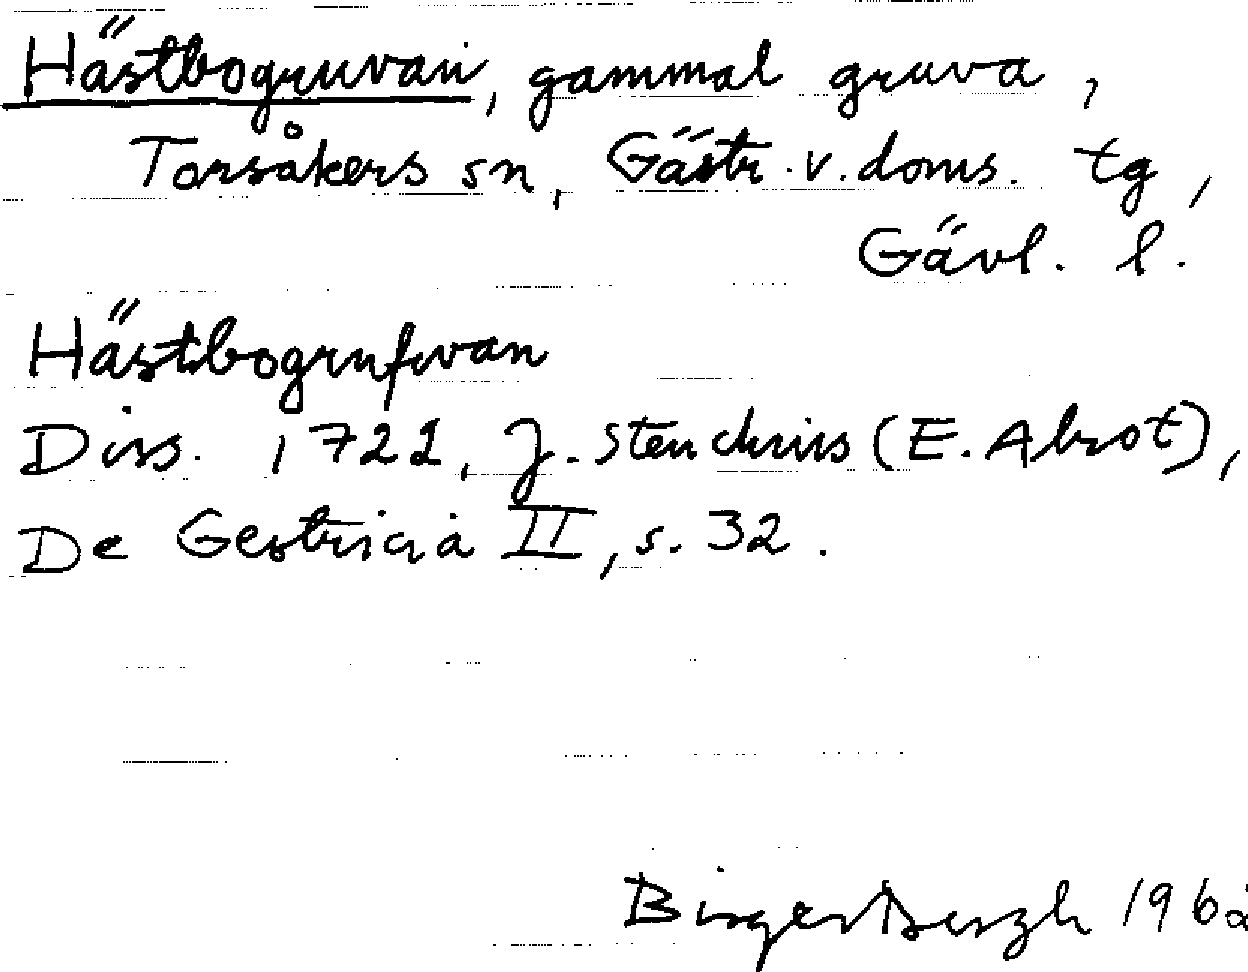 Hästbogruvan, gammal gruva,
Torsåkers sn, Gästr. v. doms. tg,
Gävl. l.
Hästbogrufwan
Diss. 1722, J. Steuchius (E. Abrot),
De Gestricia II, s. 32.
Birger Bergh 196